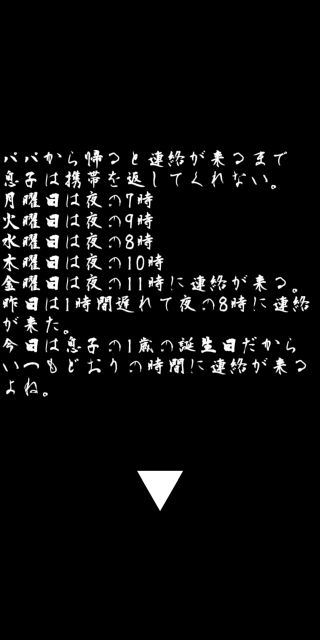 パパから帰ると連絡が来るまで
息子は携帯を返してくれない。
月曜日は夜の7時
火曜日は夜の9時
水曜日は夜の8時
木曜日は夜の10時
金曜日は夜の11時に連絡が来る。
昨日は1時間遅れて夜の8時に連絡
が来た。
今日は息子の1歳の誕生日だから
いつもどおりの時間に連絡が来る
よね。